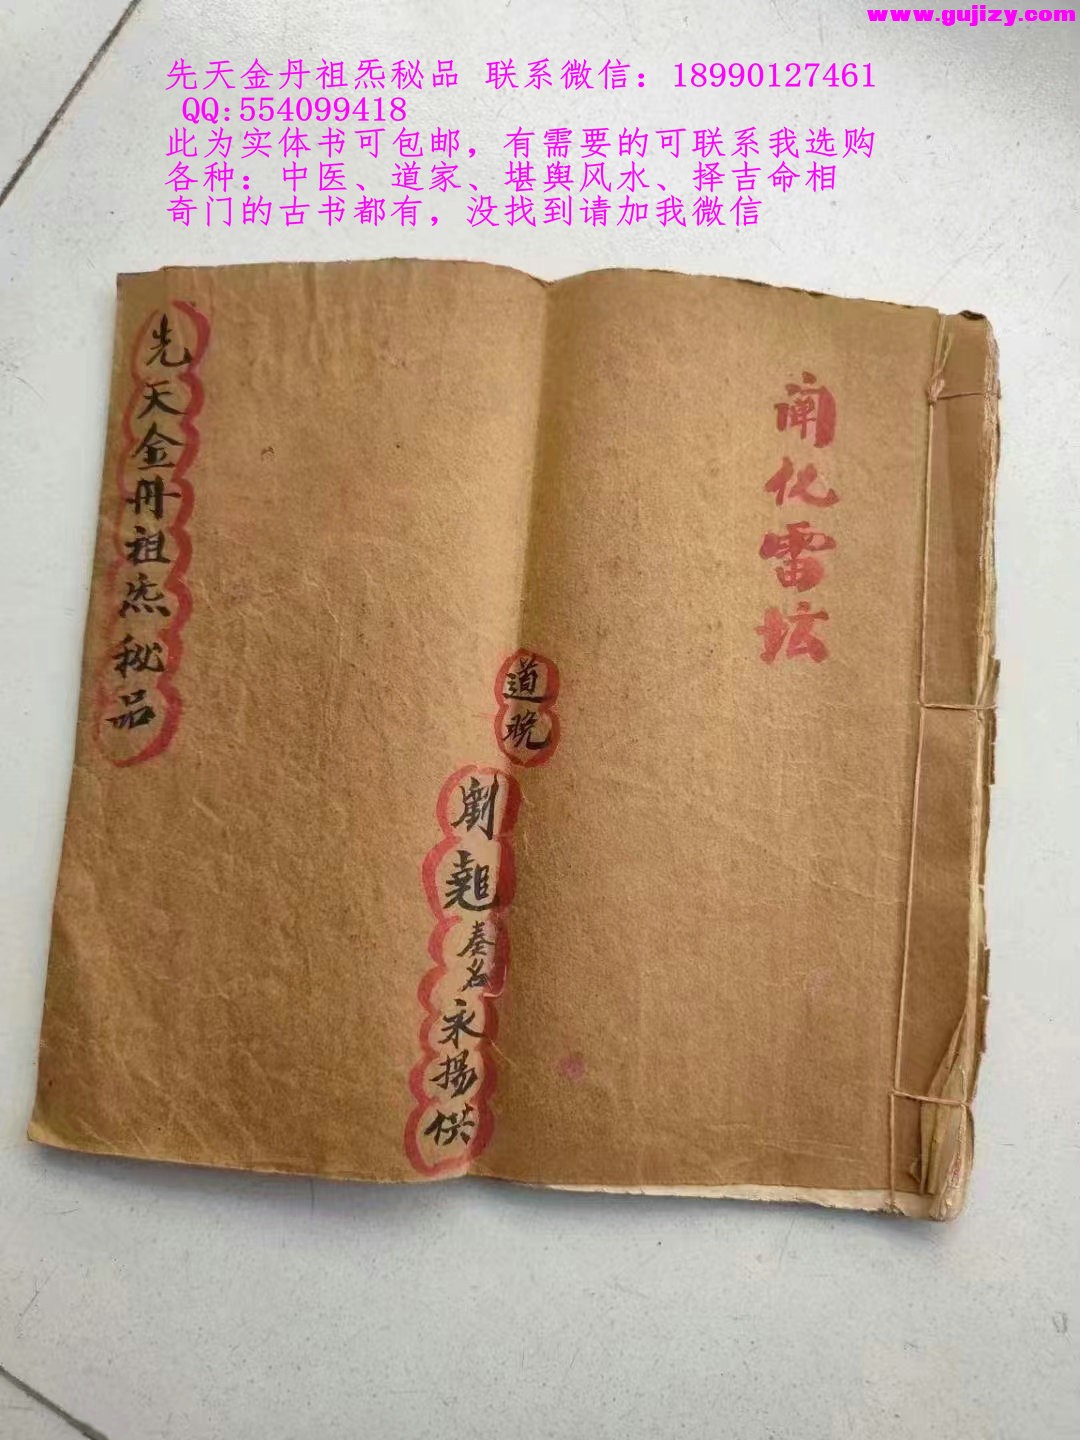 www.gujizy.com
先天金丹祖炁秘品 联系微信：18990127461
QQ:554099418
此为实体书可包邮，有需要的可联系我选购
各种：中医、道家、堪舆风水、择吉命相
奇门的古书都有，没找到请加我微信
化雷坛
道晚
刘奏名永揚供
先天金丹祖炁秘品